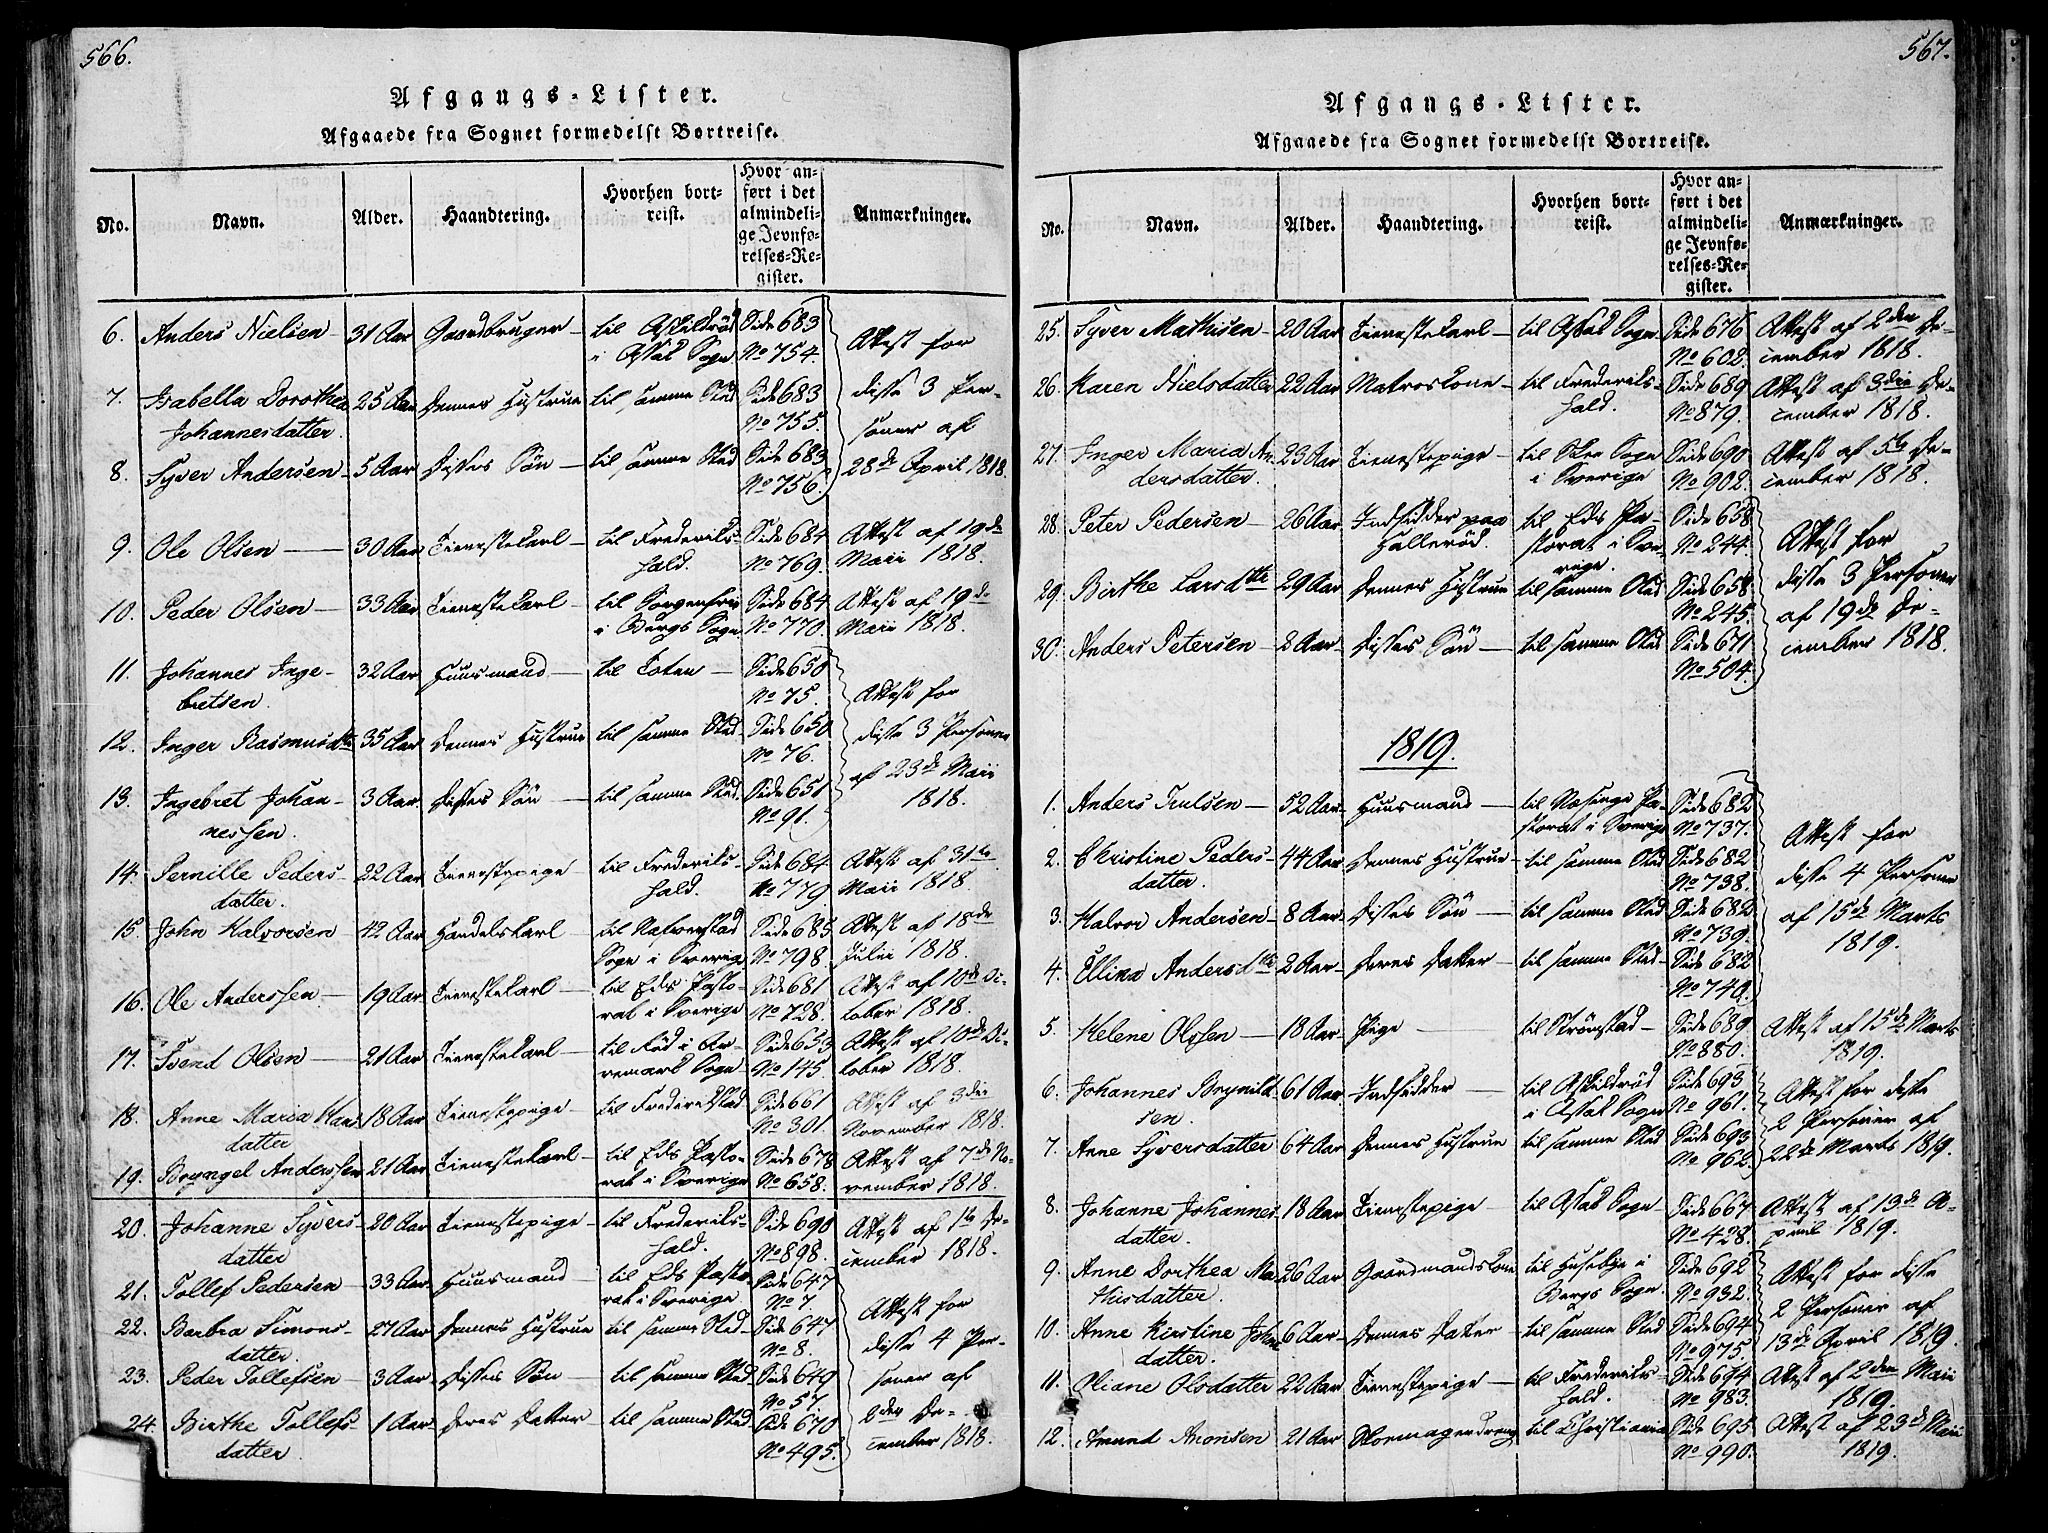 566.
Afgangs-Lister.
Afgaaede fra Sognet formedelst Bortreise.
No. Navn. Alder. Haandtering. Hvorhen bortreist. Hvor anført i det almindelige Jevnførelses-Register. Anmærkninger.
6. Anders Nielsen 31 Aar Gaardbruger til Askildrød Side 683
i Assak Sogn No 754.
Attest for
7. Isabella Dorothea 25 Aar Dennes Hustrue til samme Sted Side 683
Johannesdatter. No 755.
disse 3 Per-
soner af
8. Syver Andersen 5 Aar Disses Søn til samme Sted Side 683
No 756. 28de April 1818.
9. Ole Olsen 30 Aar Tienestekarl til Frederiks- Side 684 Attest af 19de
hald. No 769. Maii 1818.
10. Peder Olsen 33 Aar Tienestekarl til Sorgenfrie Side 684 Attest af 19de
i Bergs Sogn No 770. Maii 1818.
11. Johannes Inge- 32 Aar Huusmand til Toten Side 650
bretsen. No 75.
Attest for
12. Inger Rasmusdtr 35 Aar Dennes Hustrue til samme Sted Side 650 disse 3 Personer
No 76.
af 23de Maii
13. Ingebret Johan- 3 Aar Disses Søn til samme Sted Side 651
1818.
nessen. No 91.
14. Pernille Peders- 22 Aar Tienestepige til Frederiks- Side 684 Attest af 31te
datter. hald. No 779 Maii 1818.
15. John Halvorsen 42 Aar Handelskarl til Side 685 Attest af 18de
Sogn i Sverrig No 798. Julii 1818.
16. Ole Anderssen 19 Aar Tienestekarl til Eds Pasto- Side 681 Attest af 10de Oc-
rat i Sverige No 728. tober 1818.
17. Svend Olsen 21 Aar Tienestekarl til Rød i Ar- Side 653 Attest af 10de Oc-
remark Sogn No 145. tober 1818.
18. Anne Maria Hans 18 Aar Tienestepige til Frederikstad Side 661 Attest af 3die
datter No 301. November 1818.
19. Bryngel Anderssen 21 Aar Tienestekarl til Eds Pasto- Side 678 Attest af 7de No-
rat i Sverige No 658. vember 1818.
20. Johanne Syvers- 20 Aar Tienestepige til Frederiks- Side 690 Attest af 1te De-
datter hald. No 898. cember 1818.
21. Tollef Pedersen 33 Aar Huusmand til Eds Pasto- Side 647
rat i Sverige No 7
Attest for
22. Barbra Simons- 27 Aar Dennes Hustrue til samme Sted Side 647
datter. No 8.
disse 4 Per-
23. Peder Tollefsen 3 Aar Disses Søn til samme Sted Side 649
No 57.
soner af
24. Birthe Tollefs- 1 Aar Deres Datter til samme Sted Side 670
2den De-
datter No 495. cember 1818.
567.
Afgangs-Lister.
Afgaaede fra Sognet formedelst Bortreise.
No. Navn. Alder. Haandtering. Hvorhen bortreist. Hvor anført i det almindelige Jevnførelses-Register. Anmærkninger.
25. Syver Mathisen 20 Aar Tienestekarl til Assak Sogn Side 676 Attest af 2den De-
No 602. cember 1818.
26. Karen Nielsdatter 22 Aar Matroskone til Frederiks- Side 689 Attest af 3die De-
hald. No 879. cember 1818.
27. Inger Maria An- 23 Aar Tienestepige til Skee Sogn Side 690 Attest af 5te De-
dersdatter. i Sverige No 902. cember 1818.
28. Peter Pedersen 26 Aar Indsidder paa til Eds Pa- Side 658
Hallerød. storat i Sve- No 244.
rige.
Attest for
29. Birthe Larsdtr 29 Aar Dennes Hustrue til samme Sted Side 658
No 245.
disse 3 Personer
af 19de De-
30. Anders Petersen 8 Aar Disses Søn til samme Sted Side 671
No 504.
cember 1818.
1819.
1. Anders Trulsen 52 Aar Huusmand til Næsinge Pa- Side 682
storat i Sverige No 737.
Attest for
2. Christine Peders- 44 Aar Dennes Hustrue til samme Sted Side 682
datter. No 738.
disse 4 Personer
3. Halvor Andersen 8 Aar Disses Søn til samme Sted Side 682
No 739.
af 15de Marts
1819.
4. Ellina Andersdtr 2 Aar Deres Datter til samme Sted Side 682
No 740.
5. Helene Olssen 18 Aar Pige til Strømstad Side 689 Attest af 15de Marts
No 880. 1819.
6. Johannes Brynild- 61 Aar Indsidder til Askildrød Side 693 Attest for disse
sen. i Assak Sogn No 961. 2 Personer af
7. Anne Syversdatter 64 Aar Dennes Hustrue til samme Sted Side 693
No 962. 22de Marts 1819.
8. Johanne Johannes- 18 Aar Tienestepige til Assak Sogn Side 667 Attest af 13de A-
datter. No 428. pril 1819.
9. Anne Dorthea Ma- 26 Aar Gaardmandskone til Husebye i Side 692 Attest for disse
thisdatter. Bergs Sogn. No 932. 2 Personer af
10. Anne Kirstine Johns 6 Aar Dennes Datter til samme Sted Side 694
datter. No 975. 13de April 1819.
11. Oliane Olsdatter 22 Aar Tienestepige til Frederiks- Side 694 Attest af 2den Maii
hald. No 983. 1819.
12. Amund Aronsen 21 Aar Skomagerdreng til Christiania Side 695 Attest af 23de Maii
No 990. 1819.